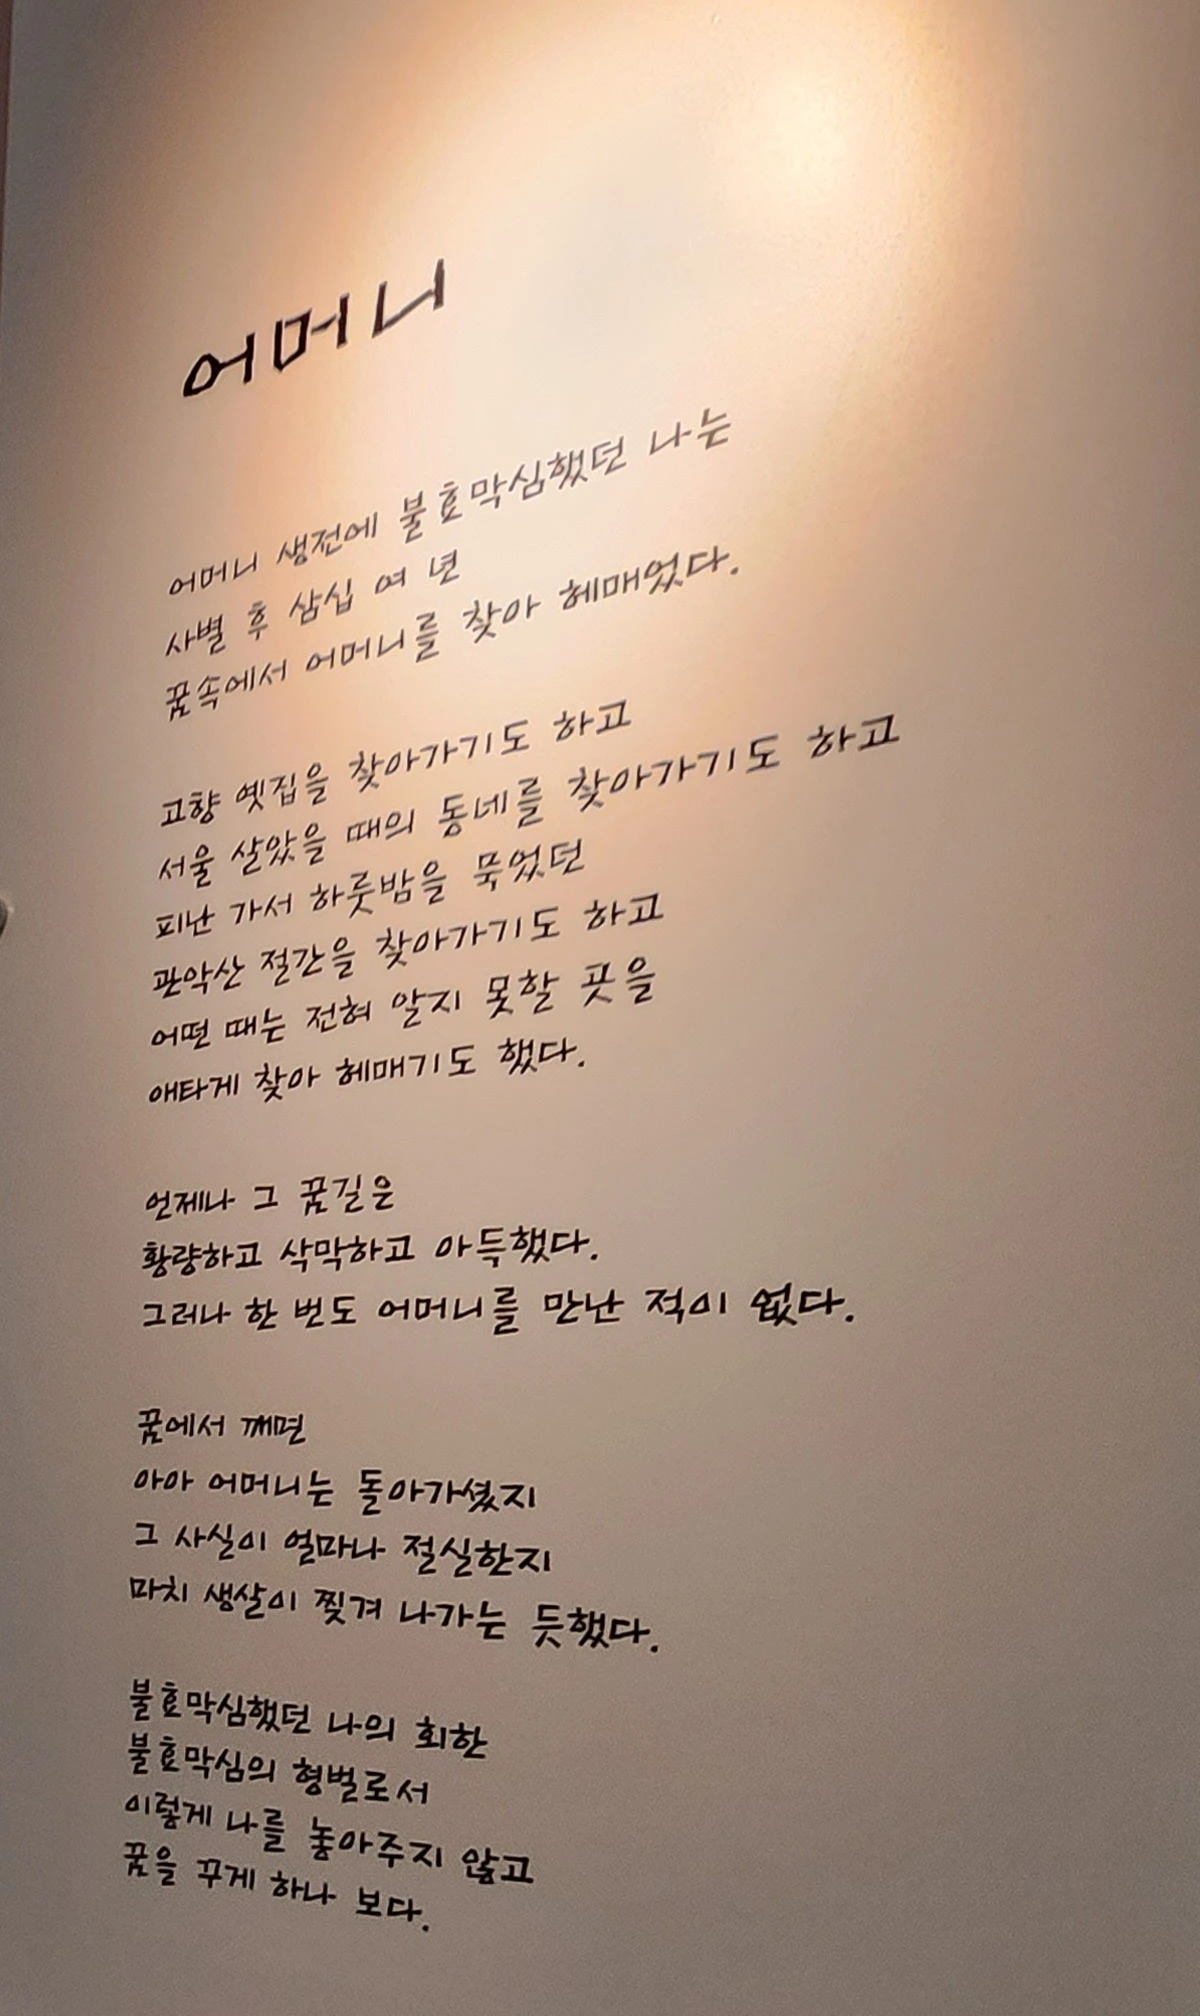 어머니
어머니 생전에 불효막심했던 나는
사별 후 삼십 여 년
꿈속에서 어머니를 찾아 헤매었다.
고향 옛집을 찾아가기도 하고
서울 살았을 때의 동네를 찾아가기도 하고
피난 가서 하룻밤을 묵었던
관악산 절간을 찾아가기도 하고
어떤 때는 전혀 알지 못할 곳을
애타게 찾아 헤매기도 했다.
언제나 그 꿈길은
황량하고 삭막하고 아득했다.
그러나 한 번도 어머니를 만난 적이 없다.
꿈에서 깨면
아아 어머니는 돌아가셨지
그 사실이 얼마나 절실한지
마치 생살이 찢겨 나가는 듯했다.
불효막심했던 나의 회한
불효막심의 형벌로서
이렇게 나를 놓아주지 않고
꿈을 꾸게 하나 보다.